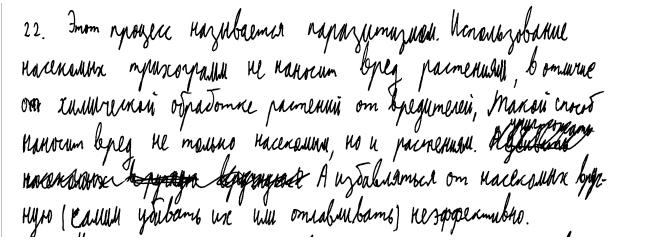 22. Этот процесс называется паразитизмом. Использование
насекомых трихограмм не наносит вред растениям, в отличие
от химической обработке растений от вредителей, такой способ
наносит вред не только насекомым, но и растениям.
насекомых А избавляться от насекомых вруч-
ную (самим убивать их или отлавливать) неэффективно.